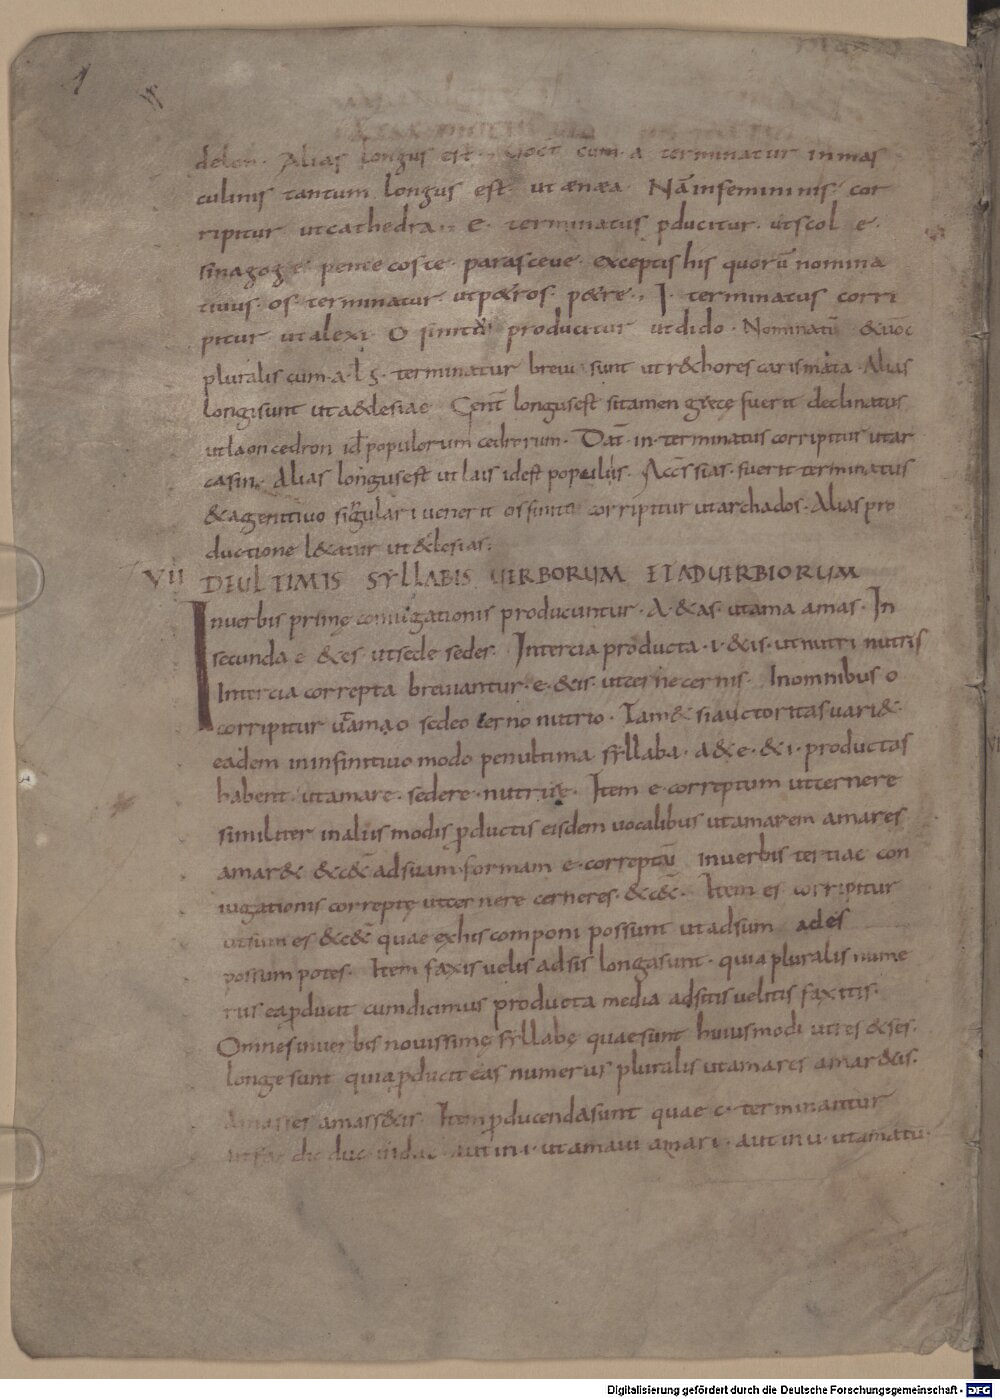 delon. Alias longus est. Uoct cum. a terminatur in mas
culinis tantum longus est ut ænæa Nā in femininis cor
ripitur ut cathedra. e. terminatus pducitur. ut scol e.
sinagoge pentecoste. parasceue. exceptis his quorū nomina
tiuus. os. terminatur ut p&ros p&re. I. terminatus corri
pitur ut alexi. O finitus producitur ut dido. Nominatū & uoc
pluralis cum. a. terminatur breui sunt ut r&hores carismata. Alias
longi sunt ut aecclesiae Gent longus est si tamen grece fuerit declinatus
ut laon cedron id populorum cedrorum. Dat in terminatus corripitur ut ar
casin. Alias longus est ut lais id est populis. Accs si as. fuerit terminatus
& a genitiuo singulari uenerit os finiti corripitur ut archados. Alias pro
ductione l&atur ut ecclesias.
VII DE ULTIMIS SYLLABIS UERBORUM ET ADUERBIORUM
In uerbis prime coniugationis producuntur. A. & as. ut ama amas. In
secunda e & es ut sede sedes. In tertia producta. i. & is. ut nutri nutris
In tertia correpta breuiantur. e. & is. ut cerne cernis. In omnibus o
corripitur ut amo sedeo cerno nutrio. Tam& si auctoritas uari&
eadem in infinitiuo modo penultima syllaba. a & e. & i. productas
habent. ut amare. sedere. nutrire. Item e correptum ut cernere
similiter in aliis modis pductis eisdem uocalibus ut amarem amares
amar& & c& ad suam formam e. correptā in uerbis tertiae con
iugationis correpte ut cernere cerneres. & c&. Item es corripitur
ut sum es & c& quae ex his componi possunt ut adsum ades
possum potes. Item faxis uelis adsis longa sunt. quia pluralis nume
rus ea pducit cum dicimus producta media adsitis uelitis faxitis.
Omnes in uerbis nouissime syllabe quae sunt huiusmodi ut res & ses.
longe sunt quia pducit eas numerus pluralis ut amares amar&is.
Amasses amass&is. Item pducenda sunt quae c. terminantur
ut fac dic duc induc aut in. i. ut amaui amari. aut in u. ut amatu.